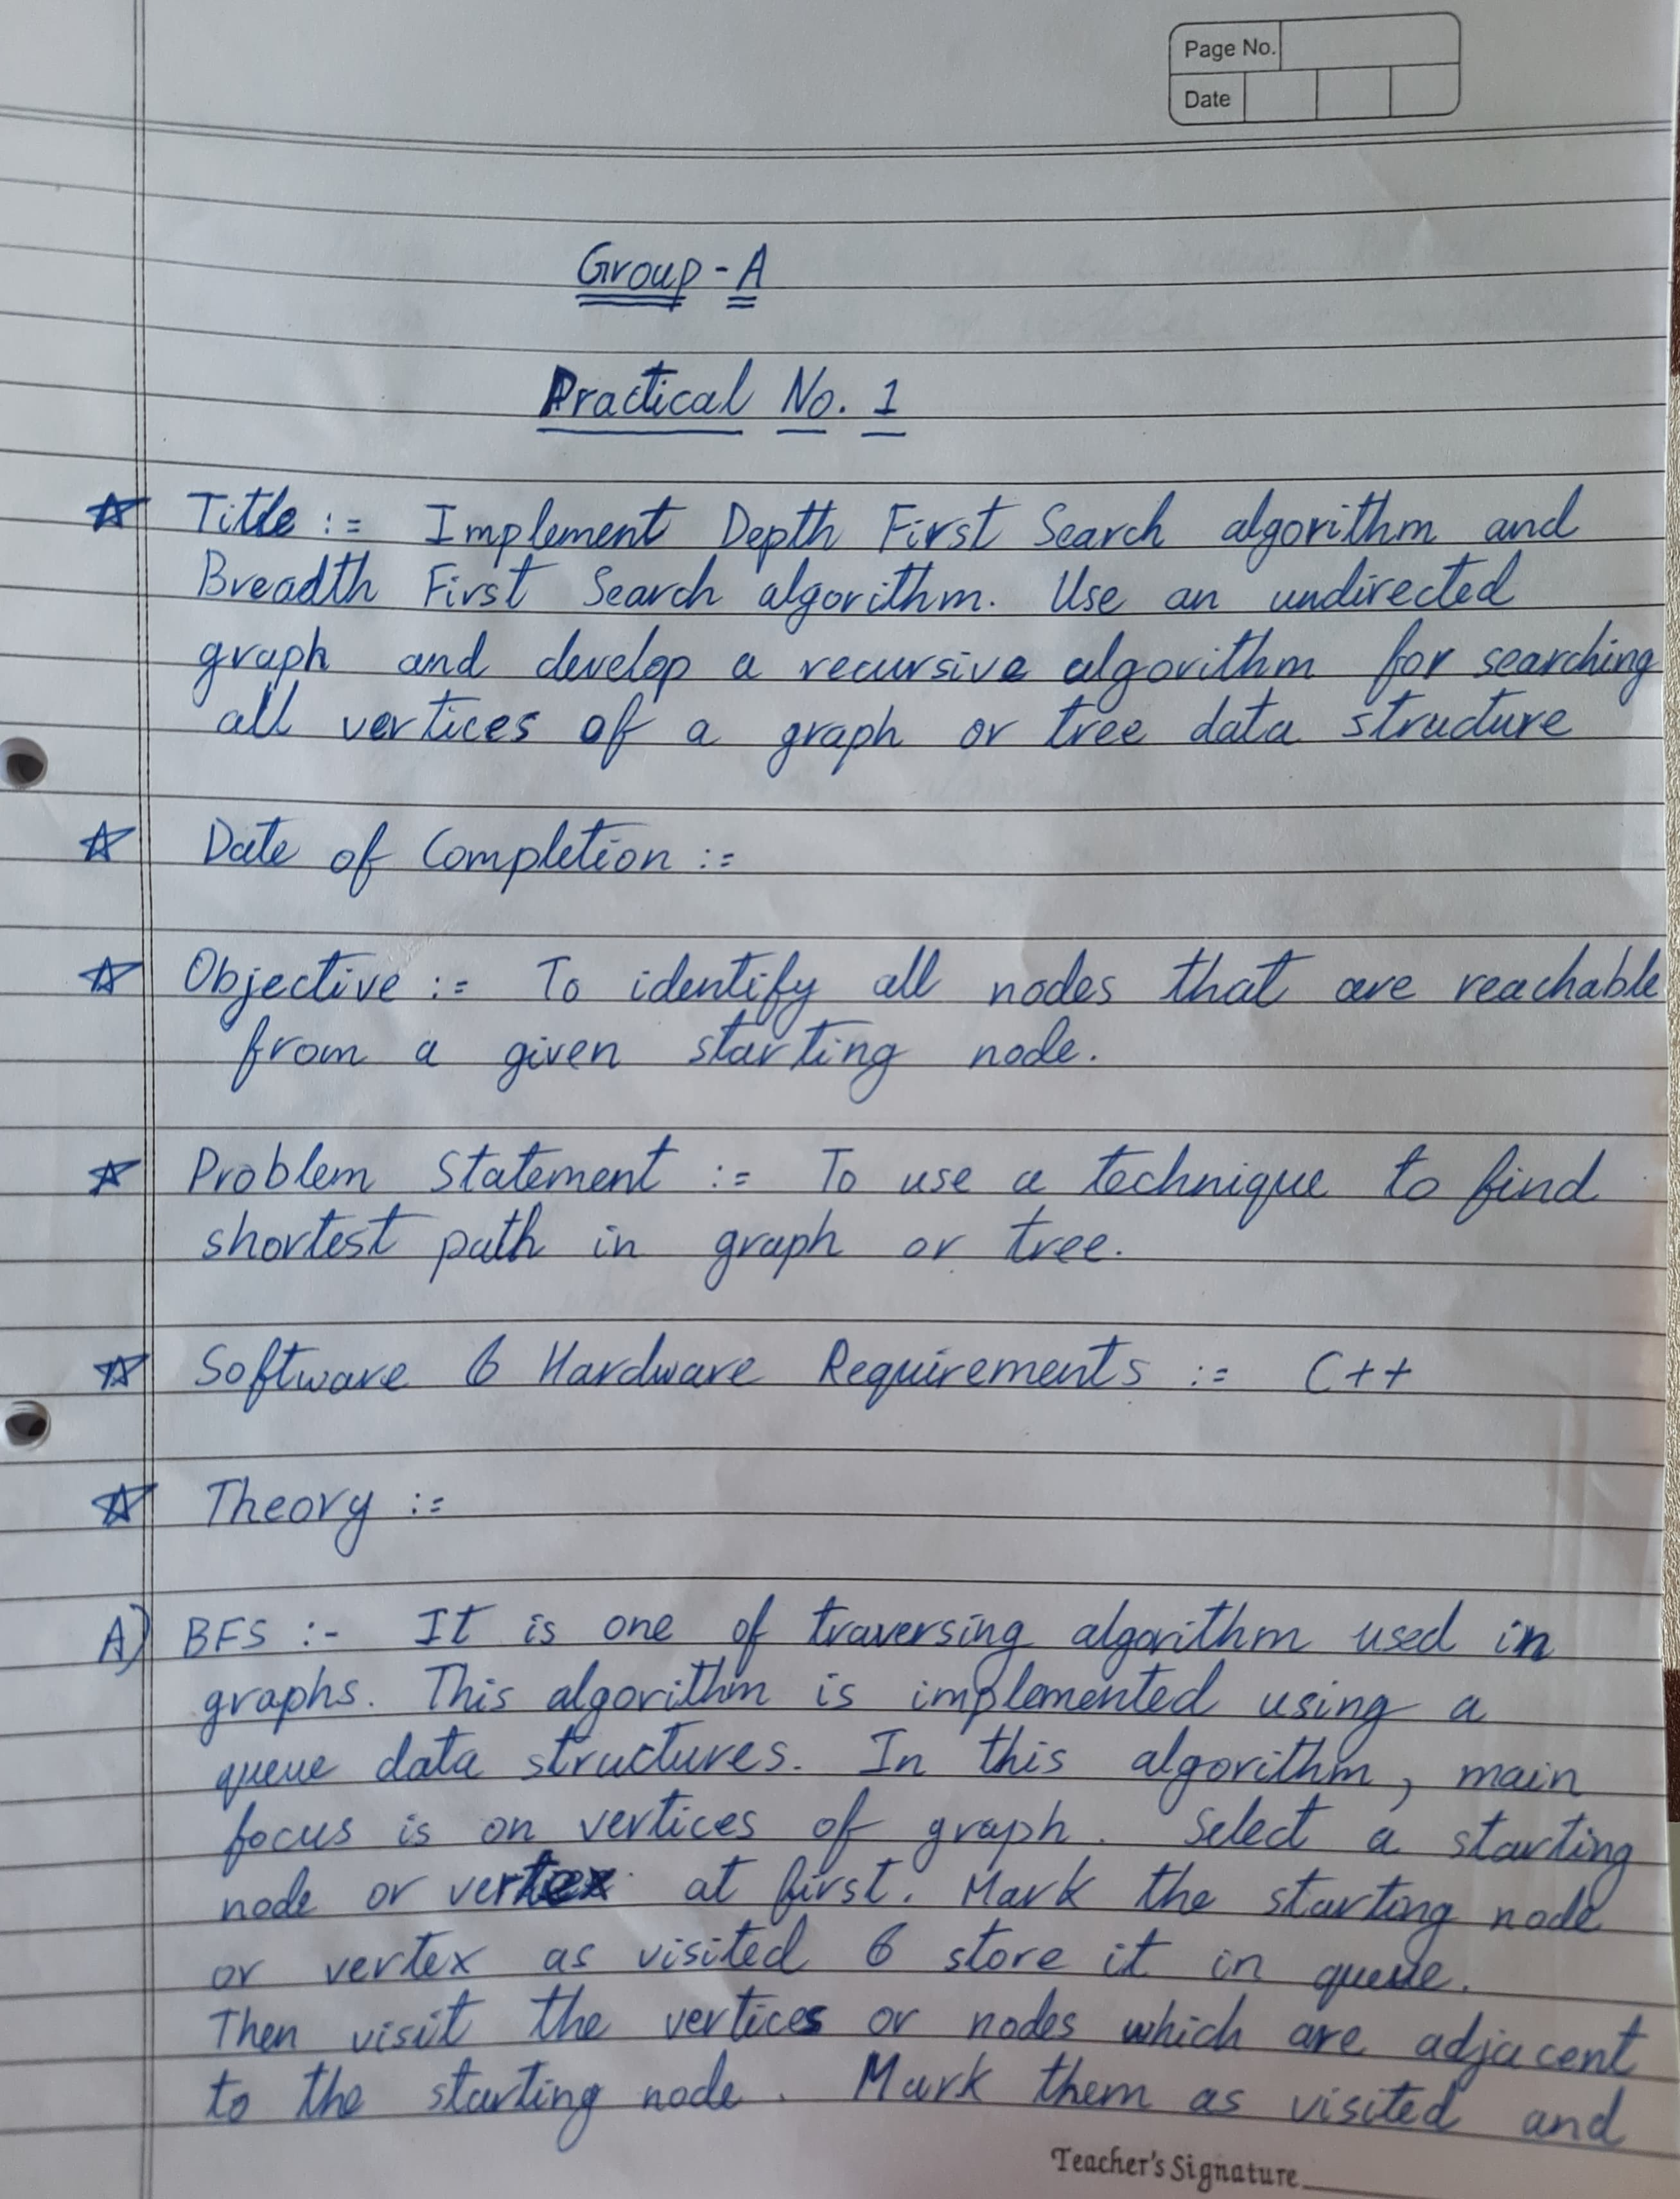 Page No.
Date
Group - A
Practical No. 1
☆ Title := Implement Depth First Search algorithm and
Breadth First Search algorithm. Use an undirected
graph and develop a recursive algorithm for searching
all vertices of a graph or tree data structure
☆ Date of Completion :=
☆ Objective := To identify all nodes that are reachable
from a given starting node.
☆ Problem Statement := To use a technique to find
shortest path in graph or tree.
☆ Software & Hardware Requirements := C++
☆ Theory :=
A) BFS :- It is one of traversing algorithm used in
graphs. This algorithm is implemented using a
queue data structures. In this algorithm, main
focus is on vertices of graph. Select a starting
node or vertex at first. Mark the starting node
or vertex as visited & store it in queue.
Then visit the vertices or nodes which are adjacent
to the starting node. Mark them as visited and
Teacher's Signature